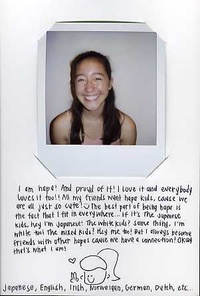 I am hapa! And proud of it! I love it and everybody
loves it too!! All my friends want hapa kids, cause we
are all just so cute! The best part of being hapa is
the fact that I fit in everywhere... if it's the Japanese
kids, hey I'm Japanese! The white kids? same thing, I'm
white too! The mixed kids? Hey me too! But I always become
friends with other hapas cause we have a connection! Okay
that's what I am!
Me
Japanese, English, Irish, Norweigen, German, Dutch, etc...